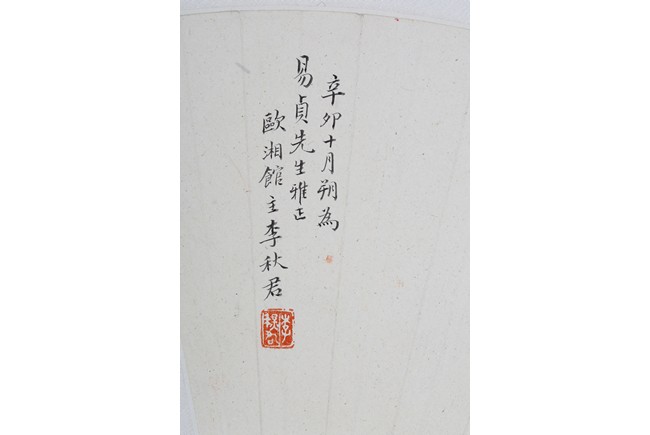 辛卯十月朔為
易貞先生雅正
歐湘館主李秋君